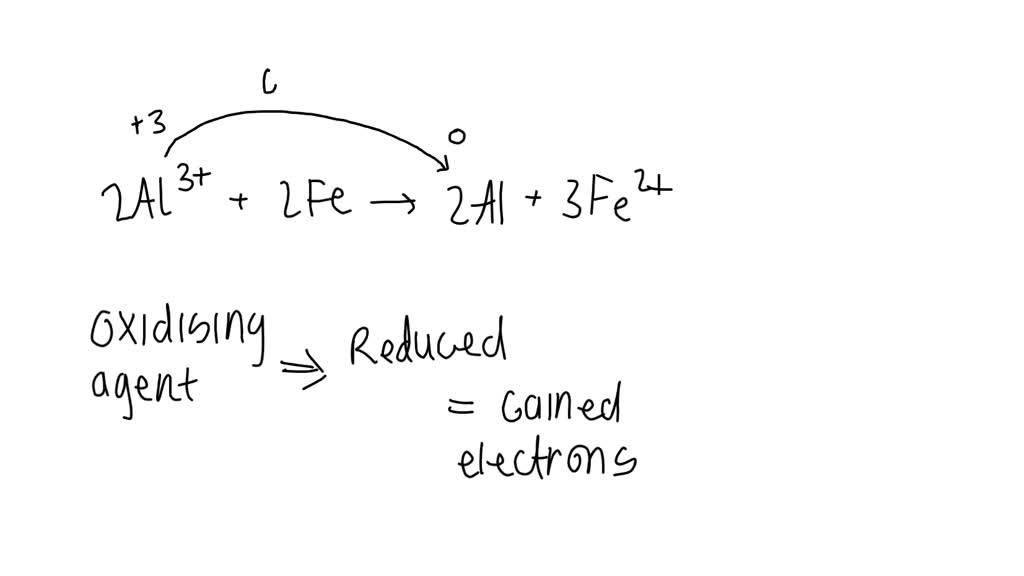 C
+3 0
2Al³⁺ + 2Fe → 2Al + 3Fe²⁺
oxidising
agent ⇒ Reduced
= Gained
electrons